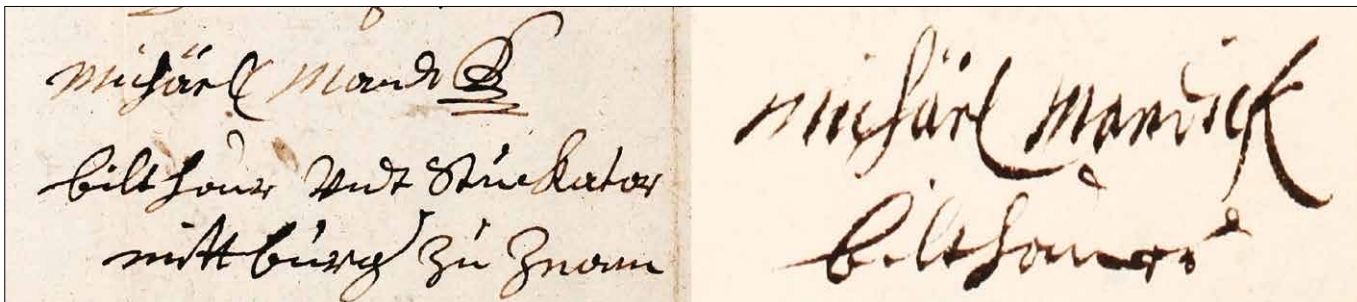 Michäel Mandik
bilthour Vndt Stuckator
mittburg Zu Znaim
Michäel Mandick
bilthauer